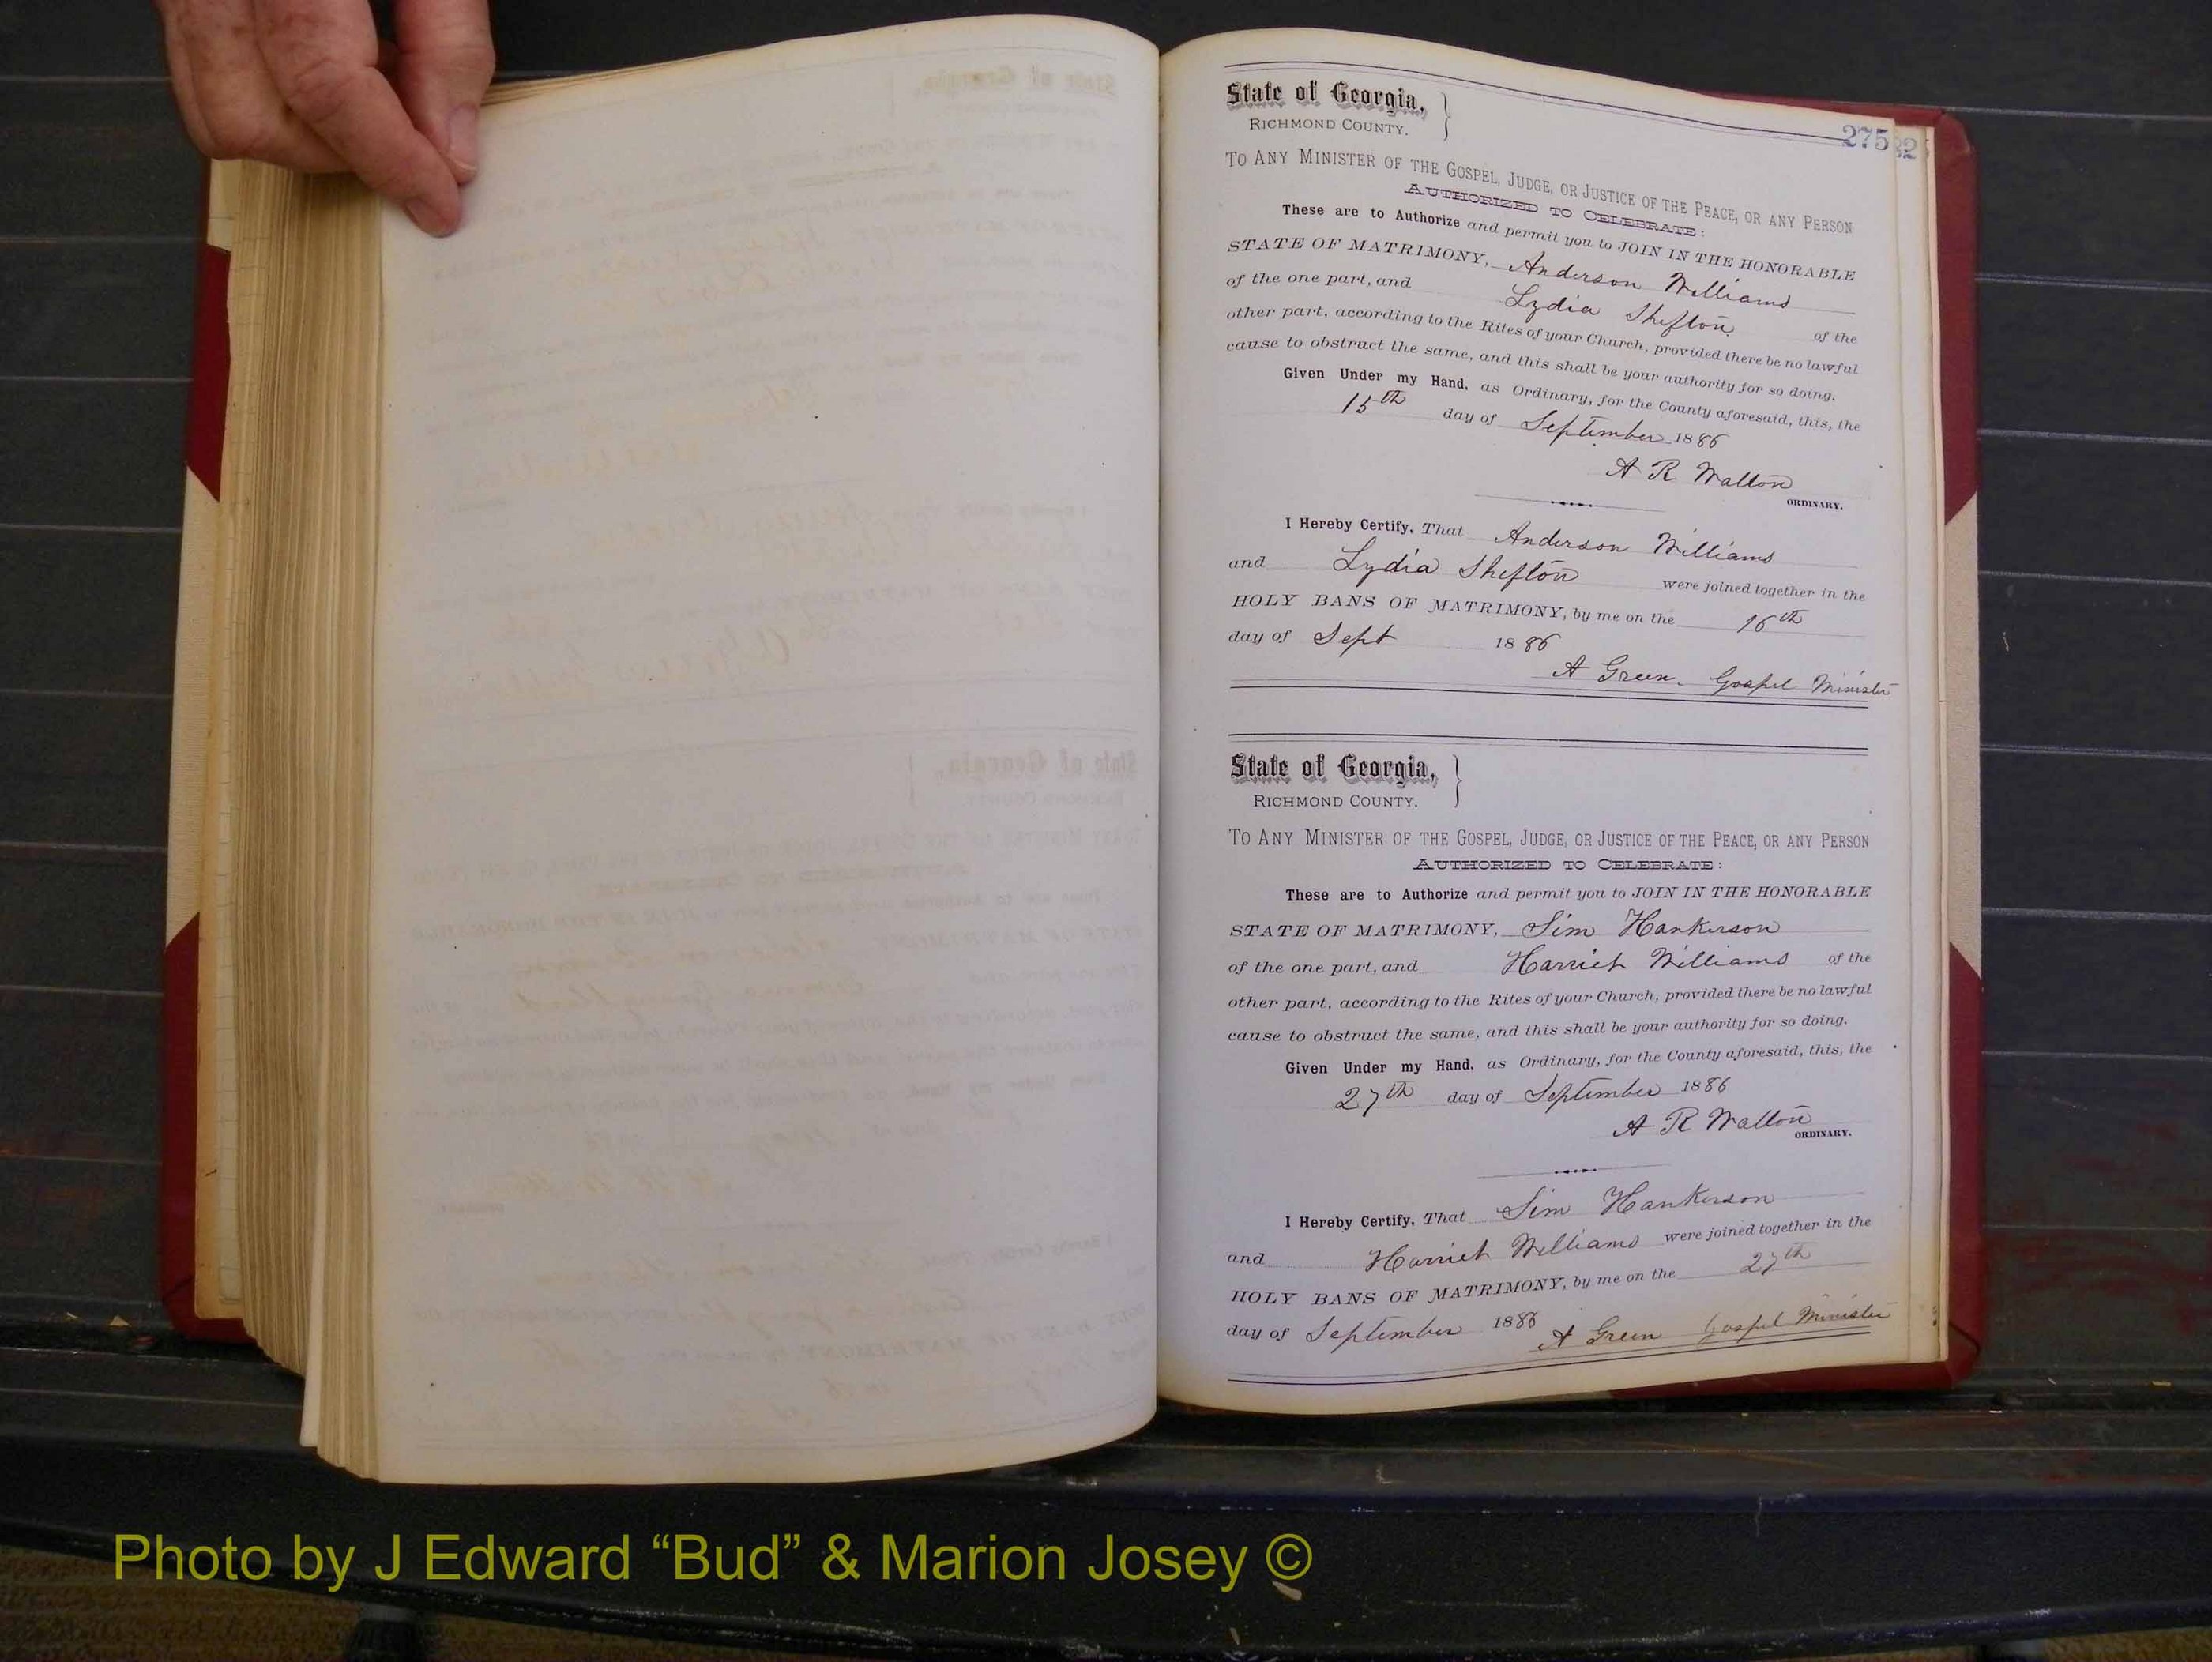 State of Georgia,
RICHMOND COUNTY.
275
TO ANY MINISTER OF THE GOSPEL, JUDGE, OR JUSTICE OF THE PEACE, OR ANY PERSON
AUTHORIZED TO CELEBRATE:
These are to Authorize and permit you to JOIN IN THE HONORABLE
STATE OF MATRIMONY, Anderson Williams
of the one part, and Lydia Shefton of the
other part, according to the Rites of your Church, provided there be no lawful
cause to obstruct the same, and this shall be your authority for so doing.
Given Under my Hand, as Ordinary, for the County aforesaid, this, the
15th day of September 1886
A R Walton
ORDINARY.
I Hereby Certify, That Anderson Williams
and Lydia Shefton were joined together in the
HOLY BANS OF MATRIMONY, by me on the 16th
day of Sept 1886
A Green. Gospel Minister
State of Georgia,
RICHMOND COUNTY.
TO ANY MINISTER OF THE GOSPEL, JUDGE, OR JUSTICE OF THE PEACE, OR ANY PERSON
AUTHORIZED TO CELEBRATE:
These are to Authorize and permit you to JOIN IN THE HONORABLE
STATE OF MATRIMONY, Sim Hankerson
of the one part, and Harriet Williams of the
other part, according to the Rites of your Church, provided there be no lawful
cause to obstruct the same, and this shall be your authority for so doing.
Given Under my Hand, as Ordinary, for the County aforesaid, this, the
27th day of September 1886
A R Walton
ORDINARY.
I Hereby Certify, That Sim Hankerson
and Harriet Williams were joined together in the
HOLY BANS OF MATRIMONY, by me on the 27th
day of September 1886 A Green Gospel Minister
Photo by J Edward “Bud” & Marion Josey ©